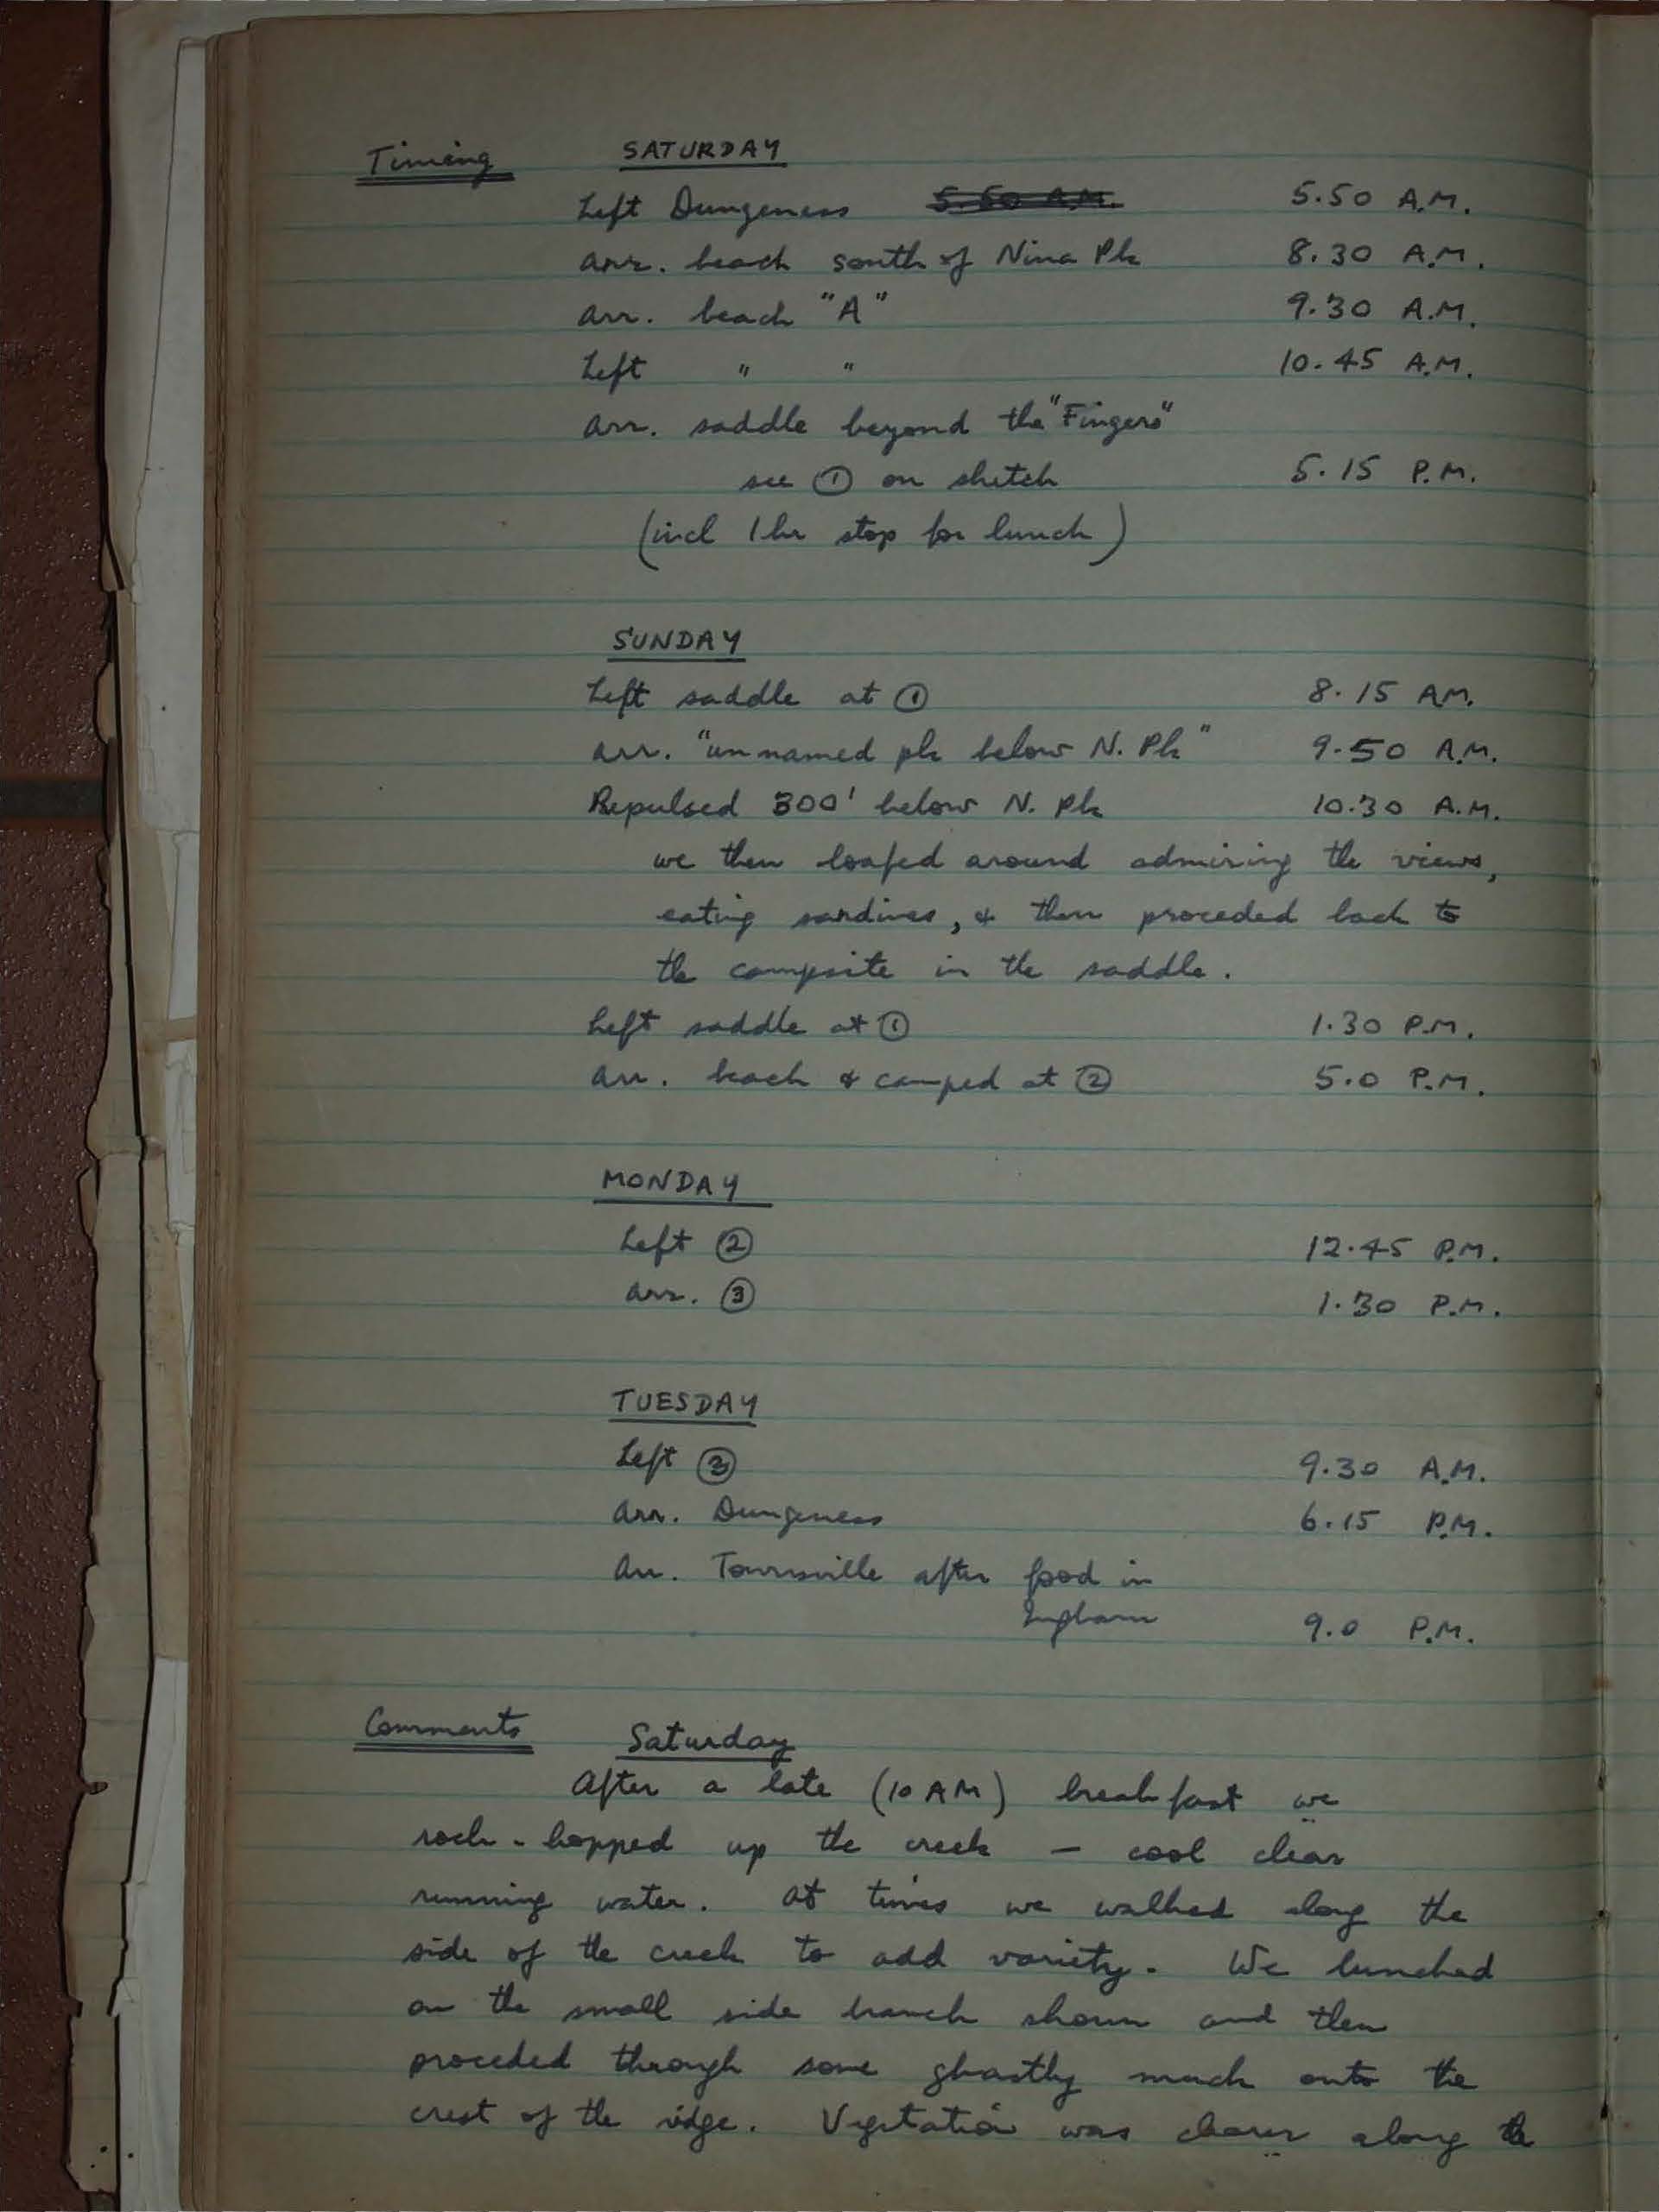 Timing SATURDAY
Left Dungeness 5.50 A.M. 5.50 A.M.
arr. beach south of Nina Pk 8.30 A.M.
arr. beach "A" 9.30 A.M.
Left " " 10.45 A.M.
arr. saddle beyond the "Fingers"
see ① on sketch 5.15 P.M.
(incl 1 hr stop for lunch)
SUNDAY
Left saddle at ① 8.15 AM.
arr. "unnamed pk below N. Pk" 9.50 A.M.
Repulsed 300' below N. Pk 10.30 A.M.
we then loafed around admiring the views,
eating sardines, & then proceded back to
the campsite in the saddle.
Left saddle at ① 1.30 P.M.
arr. beach & camped at ② 5.0 P.M.
MONDAY
Left ② 12.45 P.M.
arr. ③ 1.30 P.M.
TUESDAY
Left ③ 9.30 A.M.
arr. Dungeness 6.15 P.M.
arr. Townsville after food in
Ingham 9.0 P.M.
Comments Saturday
After a late (10 AM) breakfast we
rock-hopped up the creek — cool clear
running water. At times we walked along the
side of the creek to add variety. We lunched
on the small side branch shown and then
proceded through some ghastly muck onto the
crest of the ridge. Vegetation was along the